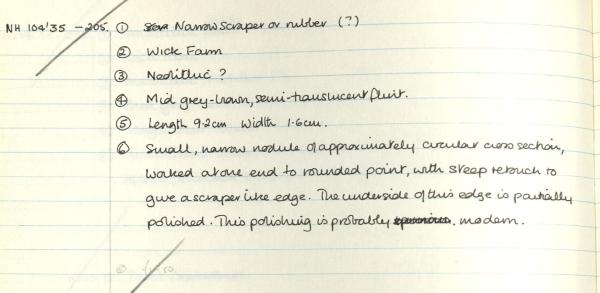 NH 104'35 - 205. ① Narrow scraper or rubber (?)
② Wick Farm
③ Neolithic ?
④ Mid grey-brown, semi-translucent flint.
⑤ Length 9.2cm Width 1.6cm.
⑥ Small, narrow nodule of approximately circular cross section,
worked at one end to rounded point, with steep retouch to
give a scraper like edge. The underside of this edge is partially
polished. This polishing is probably modern.